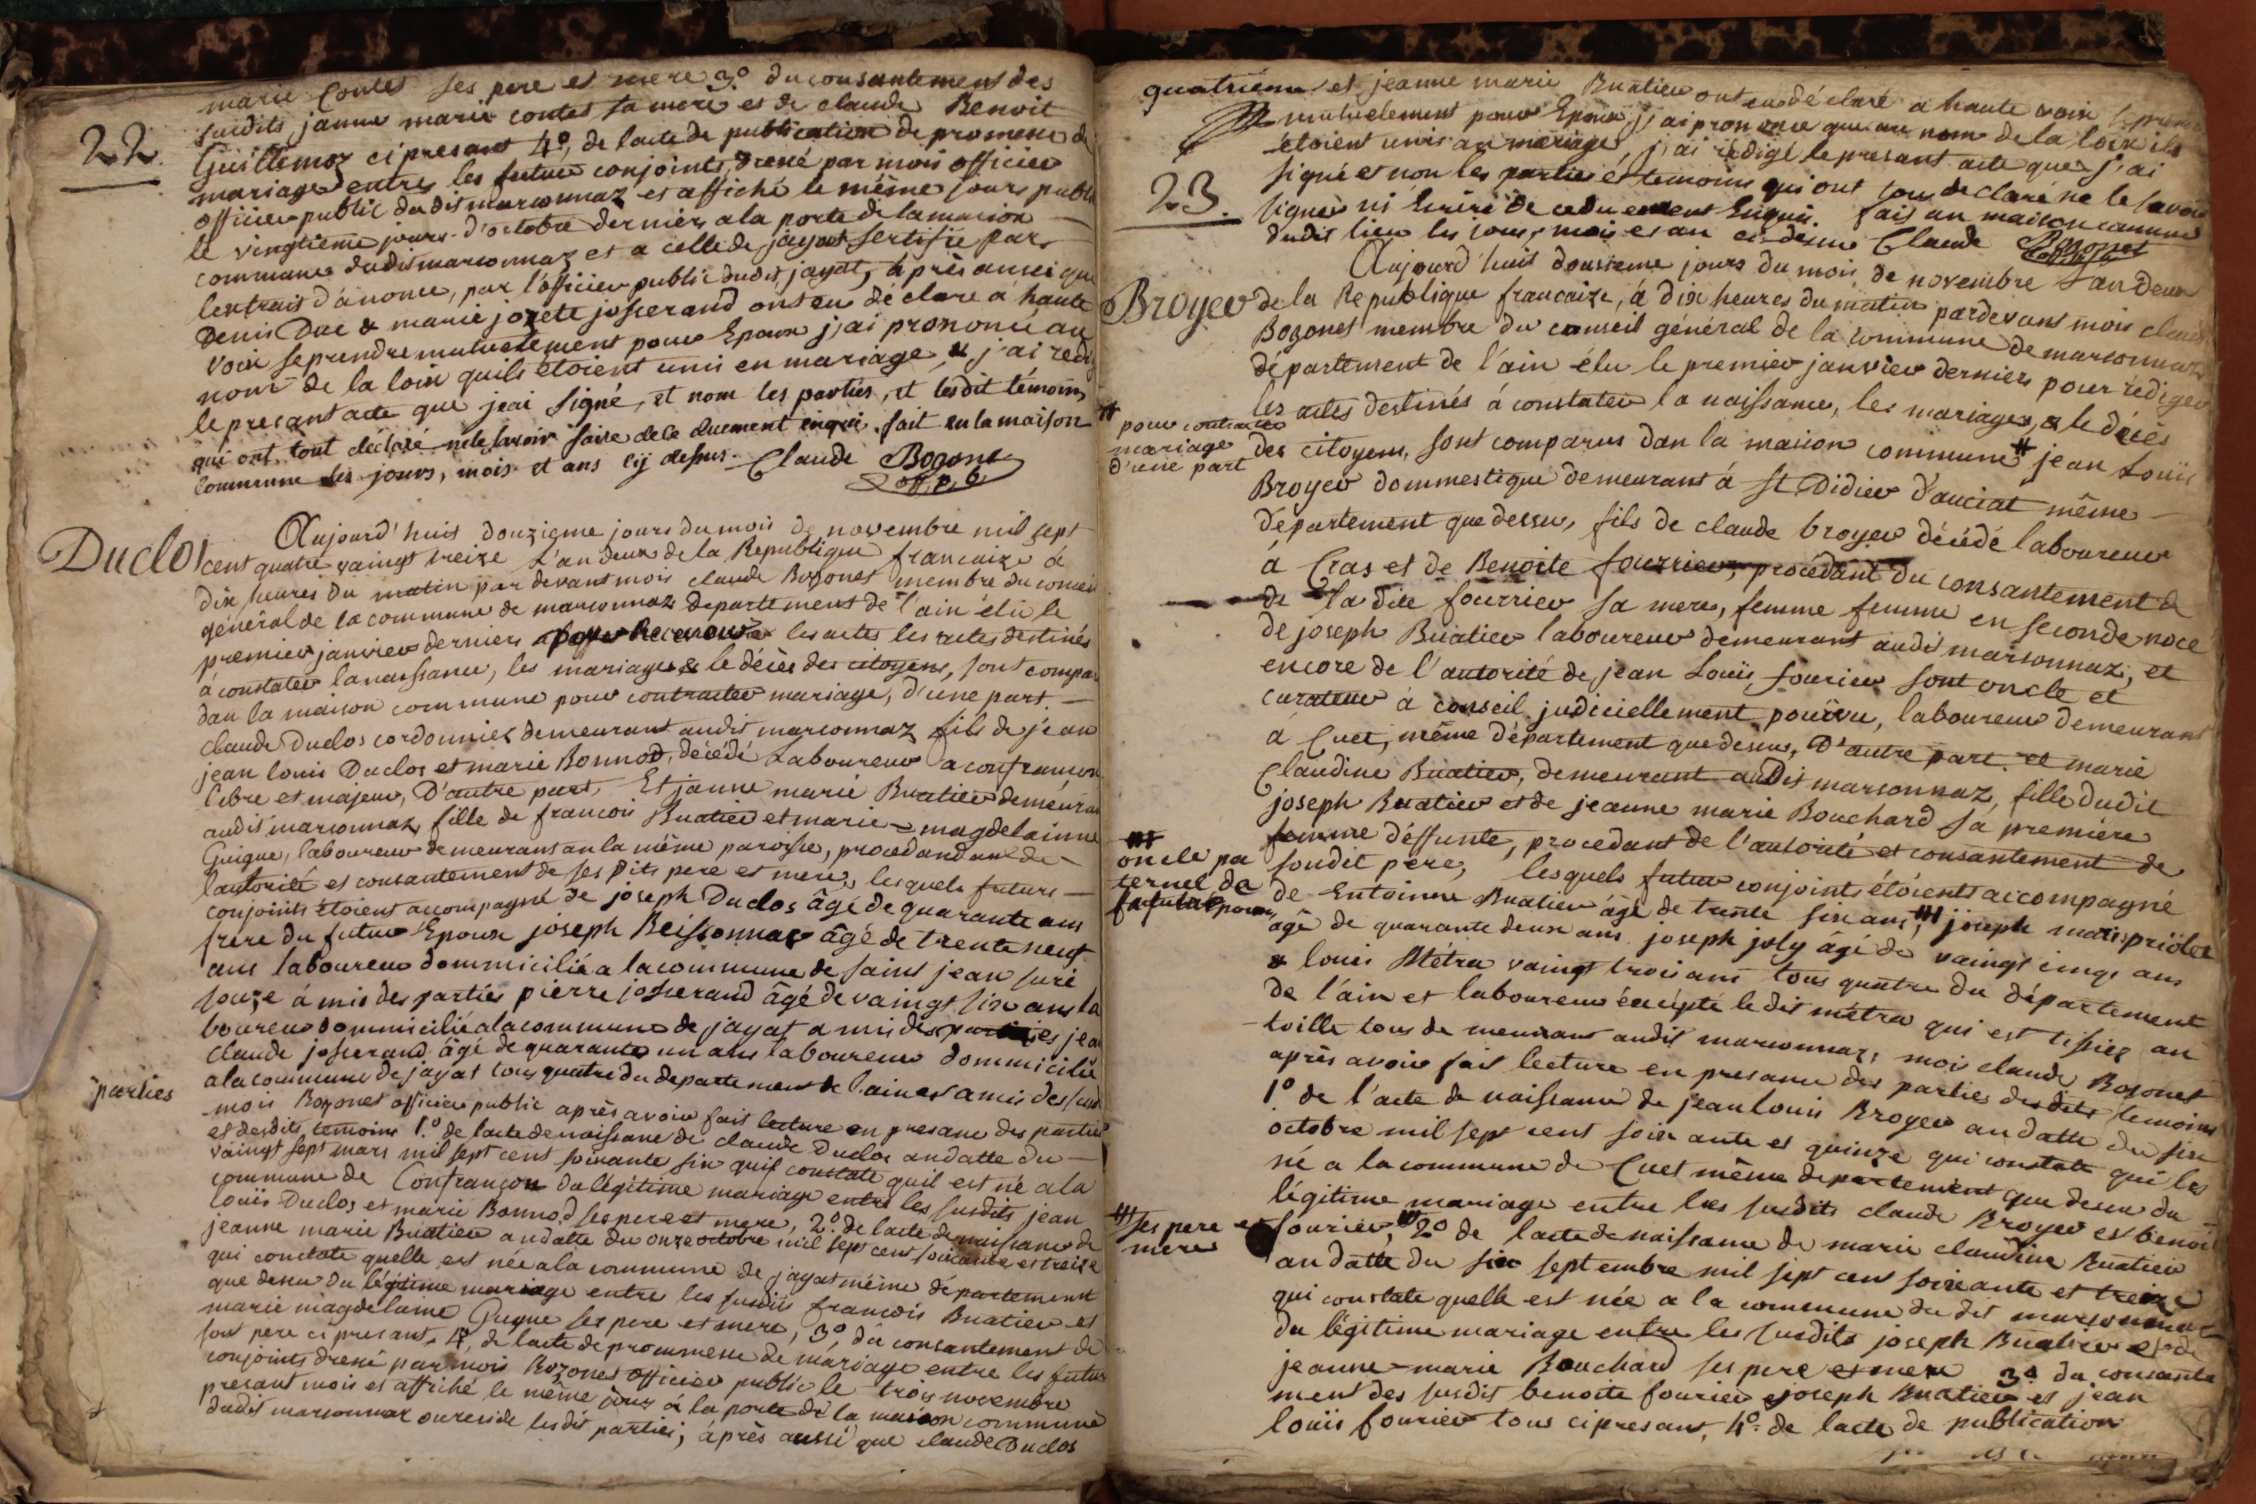 marie Contet ses pere et mere 3.o du consantement des
susdits janne marie contet sa mere et de claude Benoit
22.
Guillemoz ci presant 4o, de lacte de publication de promene de
mariage entres les futur conjoints, dresé par mois officier
officier public dudis marsonnaz et affiché le même jours
le vingtieme jours d'octobre derniers a la porte de la maison
commune dudis marsonnaz et a celle de jayat sertifié par
lextrait d'ânonce, par l'officier public dudis jayat, âprès aussi que
Denis Duc & marie jozete josserand ont eu déclare á haute
voix seprendre mutuelement pour Epoux j'ai prononcé au
nom de la loix quils étoient unis en mariage, & j'ai redi
le presant acte que jeai signé, et nom les parties, et lesdit témoins
qui ont tout déclaré nele savoir faire de ce duement enquis. fait en la maison
commune les jours, mois et ans cy dessus. Claude Bozonet
off. p. b.
Duclos
Aujourd'huis douzieme jours du mois de novembre mil sept
cent quatre vaingt treize L'an deux de la Republique francaize á
dix heures du matin par devant mois claude Bozonet membre du conseil
général de la commune de marsonnaz departement de l'ain élu le
premier janvier derniers les actes les actes destinés
á constater la naissance, les mariages & le décès des citoyens, sont compar
dan la maison commune pour contracter mariage, d'une part.
claude Duclos cordonnier demeurant audis marsonnaz fils de jean
jean louis Duclos et marie Bonnod, décédé Laboureur a confrancon
libre et majeur, D'autre part, Et janne marie Buatier demeurant
audis marsonnaz, fille de francois Buatier et marie magdelainne
Guigue, laboureur demeurans an la même paroisse, procedand de
lautorité et consantement de ses dits pere et mere, lesquels futurs
conjoints étoient accompagné de joseph Duclos âgé de quarante ans
frere du futur Epoux joseph Beissonnas âgé de trente neuf
ans laboureur dommicilié a la commune de saint jean sure
souze á mis des parties pierre josserand âgé de vaingt six ans la
boureur dommicilié a la commune de jayat a mis des parties jean
claude josserand âgé de quarante un ans laboureur dommicilié
a la commune de jayat tous quatre du departement de l'ain et amis des
parties
mois Bozonet officier public après avoir fait lecture en presance des parties
et desdits temoins 1.o de lacte de naissance de claude Duclos an datte du
vaingt sept mars mil sept cent soixante six quis constate quil est né a la
commune de Confrançon du légitime mariage entre les susdits jean
louis Duclos et marie Bonnod ses pere et mere, 2.o de lacte de naissance de
jeanne marie Buatier an datte du onze octobre mil sept cent soixante et treize
qui constate quelle est née a la commune de jayat même département
que dessu du légitime mariage entre les susdis francois Buatier et
marie magdelaine Guque ses pere et mere, 3o du consantement de
son pere ci presant, 4, de lacte de prommene de mariage entre les futur
conjoints dresé par mois Bozonet officier public le trois novembre
presant mois et affiché le même jour á la porte de la maison commune
dudis marsonnaz ou reside lesdis parties, áprès aussi que claude Duclos
quatrieme et jeanne marie Buatier ont eu déclaré a haute voix
mutuelement pour Epoux j'ai prononcé que au nom de la loix ils
étoient unis an mariage, j'ai rédigé le presant acte que j'ai
23.
signé et non les parties et temoins qui ont tous declaré ne le savoir
signer ni Ecrire de ce duement Enquis. fais an maison commune
dudis lieu les jours, mois et an ci-dessus Claude Bozonet
Aujourd'huit dousieme jours du mois de novembre l'an deux
Broyer
de la Republique francaize, á dix heures du matin pardevant mois claude
Bozonet membre du conseil général de la commune de marsonnaz
département de l'ain élu le premier janvier derniers pour rediger
les actes destinés á constater la naissance, les mariages, & le décès
# pour contracter
mariage
d'une part
des citoyens, sont comparus dan la maison commune # jean Louis
Broyer dommestique demeurant á St Didier d'auciat même
département que dessu, fils de claude broyer décédé laboureur
á Cras et de Benoite fourrier, procédant du consantement de
de la dite fourrier sa mere, femme femme en seconde noce
de joseph Buatier laboureur demeurant audis marsonnaz, et
encore de l'autorité de jean Louis fourier sont oncle et
curateur á conseil judiciellement pourvu, laboureur demeurant
á Cuet, même département que dessus, D'autre part. et marie
Claudine Buatier, demeurant audis marsonnaz, fille dudit
joseph Buatier et de jeanne marie Bouchard sa première
femme déffunte, procedant de l'autorité et consantement de
soudit père, lesquels futur conjoints étoients accompagné
oncle pa
ternel de
la future Epouse,
de Entoinne Buatier âgé de trente six ans, joseph
âgé de quarante deux ans joseph joly âgé de vaingt cinq ans
& louis Métra vaingt trois ans tous quatre du département
de l'ain et laboureur éxcepte le dis métra qui est tissier an
toille tous de meurant audis marsonnaz, mois claude Bozonet
après avoir fait lecture en presance des parties desdits temoins
1.o de l'acte de naissance de jean louis Broyer an datte du six
octobre mil sept cent soixante et quinze qui constate quil es
né a la commune de Cuet même departement que dessu du
légitime mariage entre les susdits claude Broyer et benoit
ses pere et
mere
fourier, 2o de lacte de naissance de marie claudine Buatier
an datte du six septembre mil sept cent soixante et treize
qui constate quelle est née a la commune du dis marsonnaz
du légitime mariage entre les susdits joseph Buatier et de
jeanne-marie Bouchard ses pere et mere 3o du consante
ment des susdis benoite fourier joseph Buatier et jean
louis fourier tous ci presant, 4o: de lacte de publication